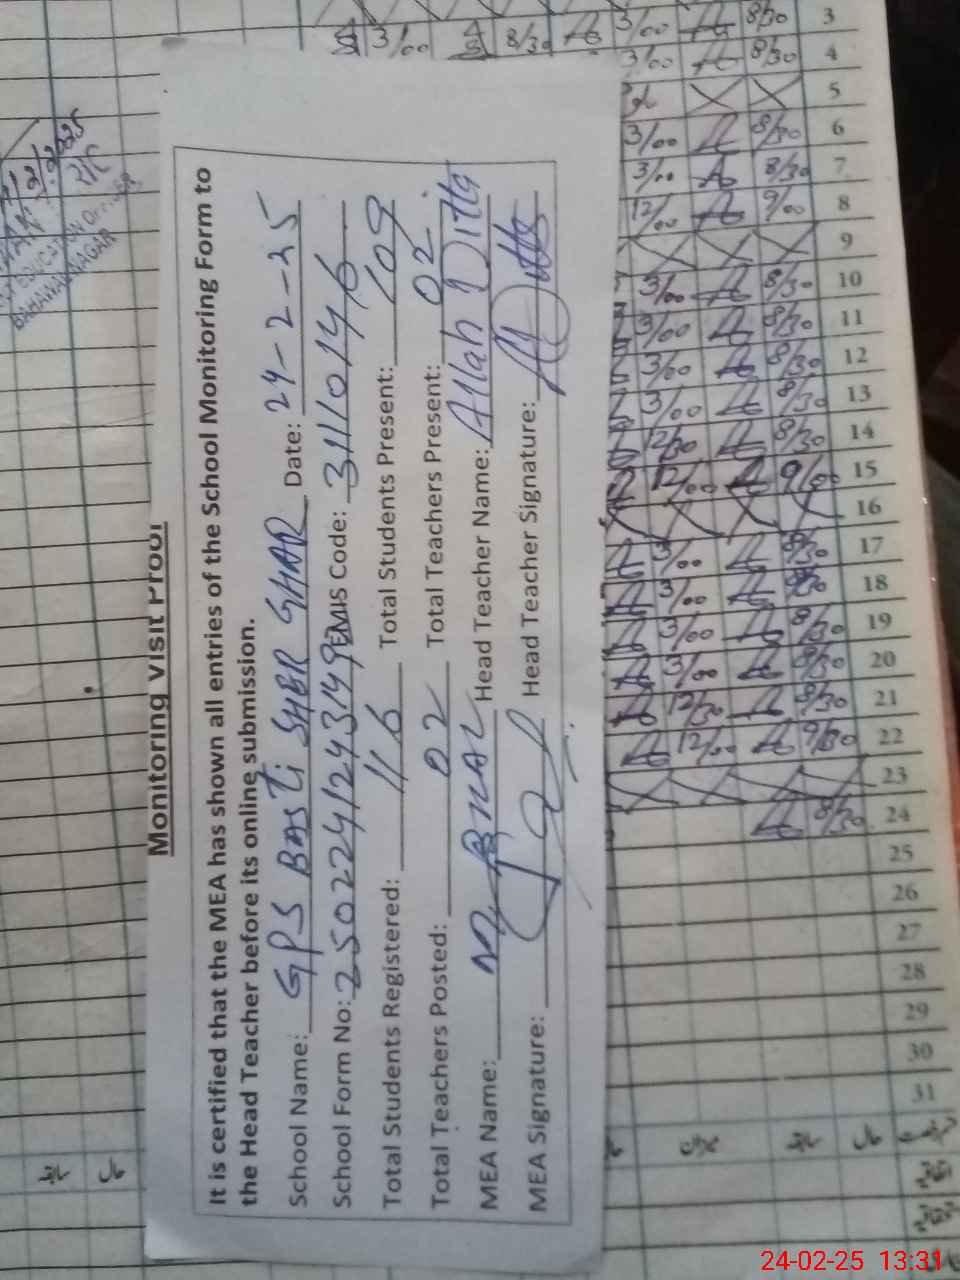 Monitoring Visit Proof
It is certified that the MEA has shown all entries of the School Monitoring Form to
the Head Teacher before its online submission.
School Name: GPS BASTI SHER GHAR Date: 24-2-25
School Form No: 250224124314 EMIS Code: 31110146
Total Students Registered: 116 Total Students Present: 109
Total Teachers Posted: 02 Total Teachers Present: 02
MEA Name: Head Teacher Name: Allah Ditta
MEA Signature: Head Teacher Signature:
2/2025
EDUCATION OFFICER
BAHAWALNAGAR
3/00 8/30 3/00 8/30 3
3/00 8/30 4
5
3/00 8/30 6
3/00 8/30 7
12/00 9/00 8
9
3/00 8/30 10
3/00 8/30 11
3/00 8/30 12
3/00 8/30 13
12/30 8/30 14
12/00 9/00 15
16
3/00 8/30 17
3/00 8/30 18
3/00 8/30 19
3/00 8/30 20
12/30 8/30 21
12/00 9/30 22
23
8/30 24
25
26
27
28
29
30
31
24-02-25 13:31